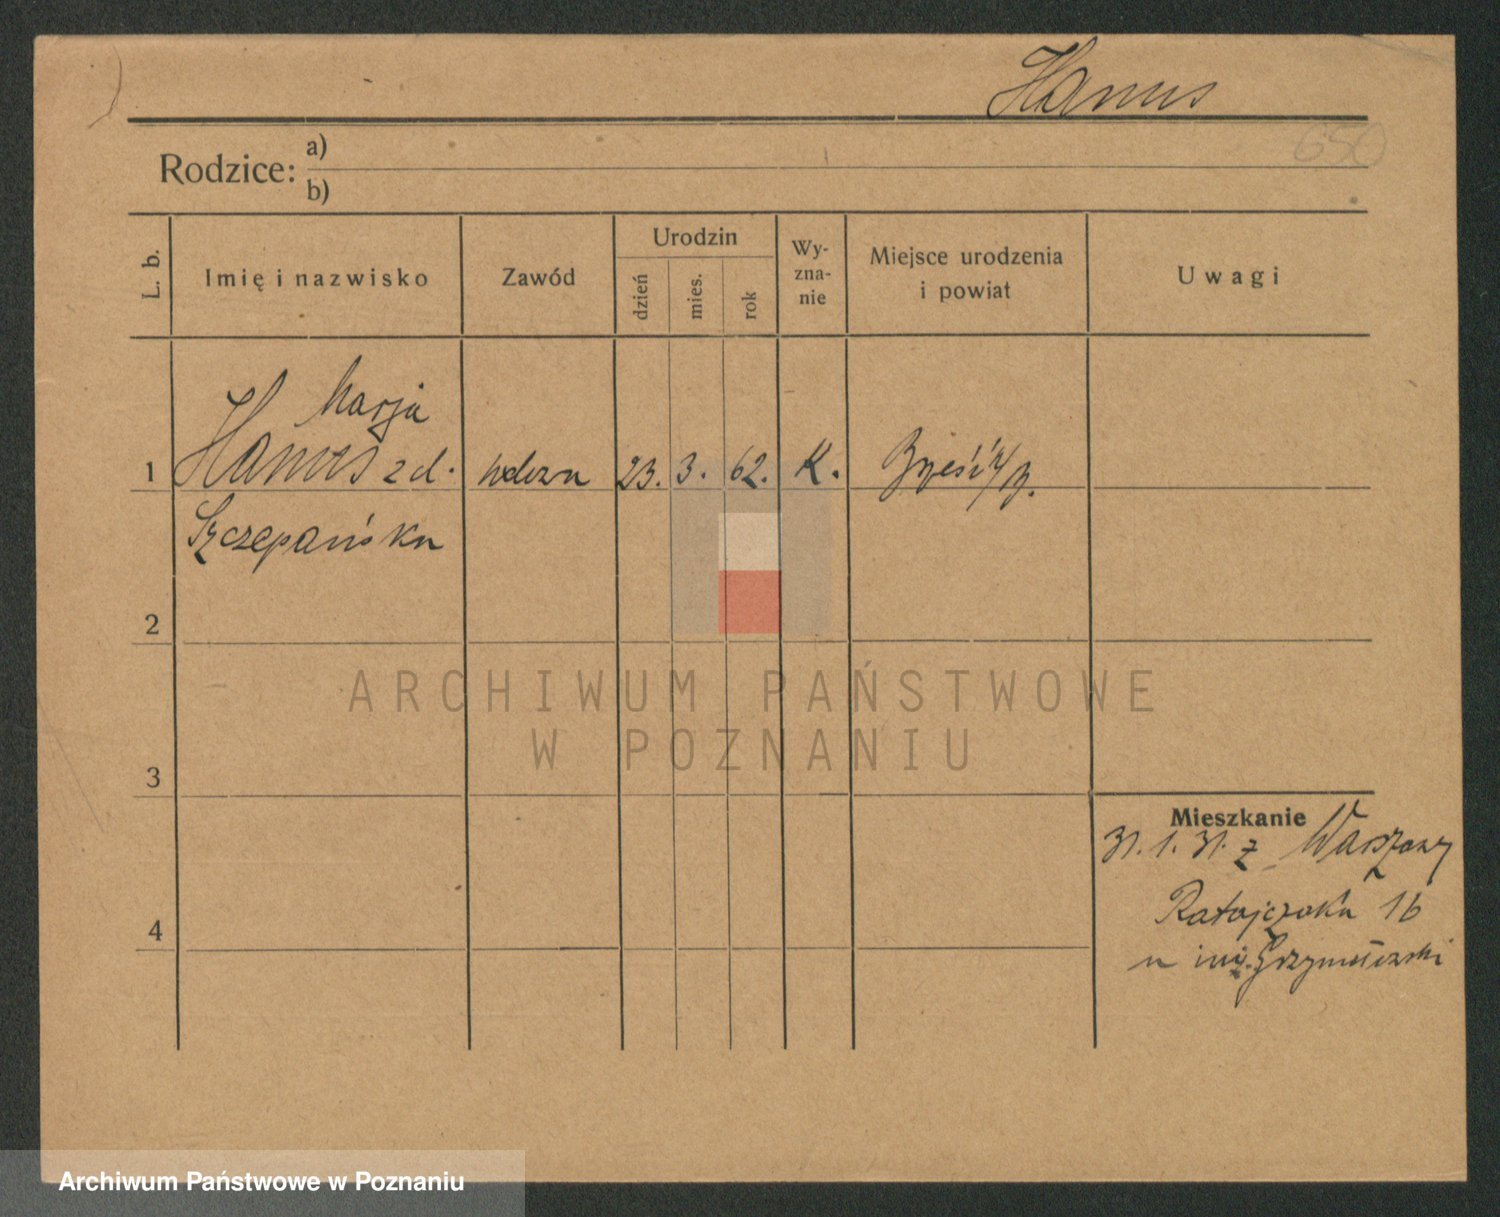 Hanus
650
Rodzice: a)
b)
L. b.
Imię i nazwisko
Zawód
Urodzin
dzień
mies.
rok
Wy-
zna-
nie
Miejsce urodzenia
i powiat
Uwagi
Marja
1 Hanus z d. wdowa 23. 3. 62. K. Brześć n/B.
Szczepańska
2
3
4
ARCHIWUM PAŃSTWOWE
W POZNANIU
Mieszkanie
31. 1. 31. z Warszawy
Ratajczaka 16
u inż.
Archiwum Państwowe w Poznaniu